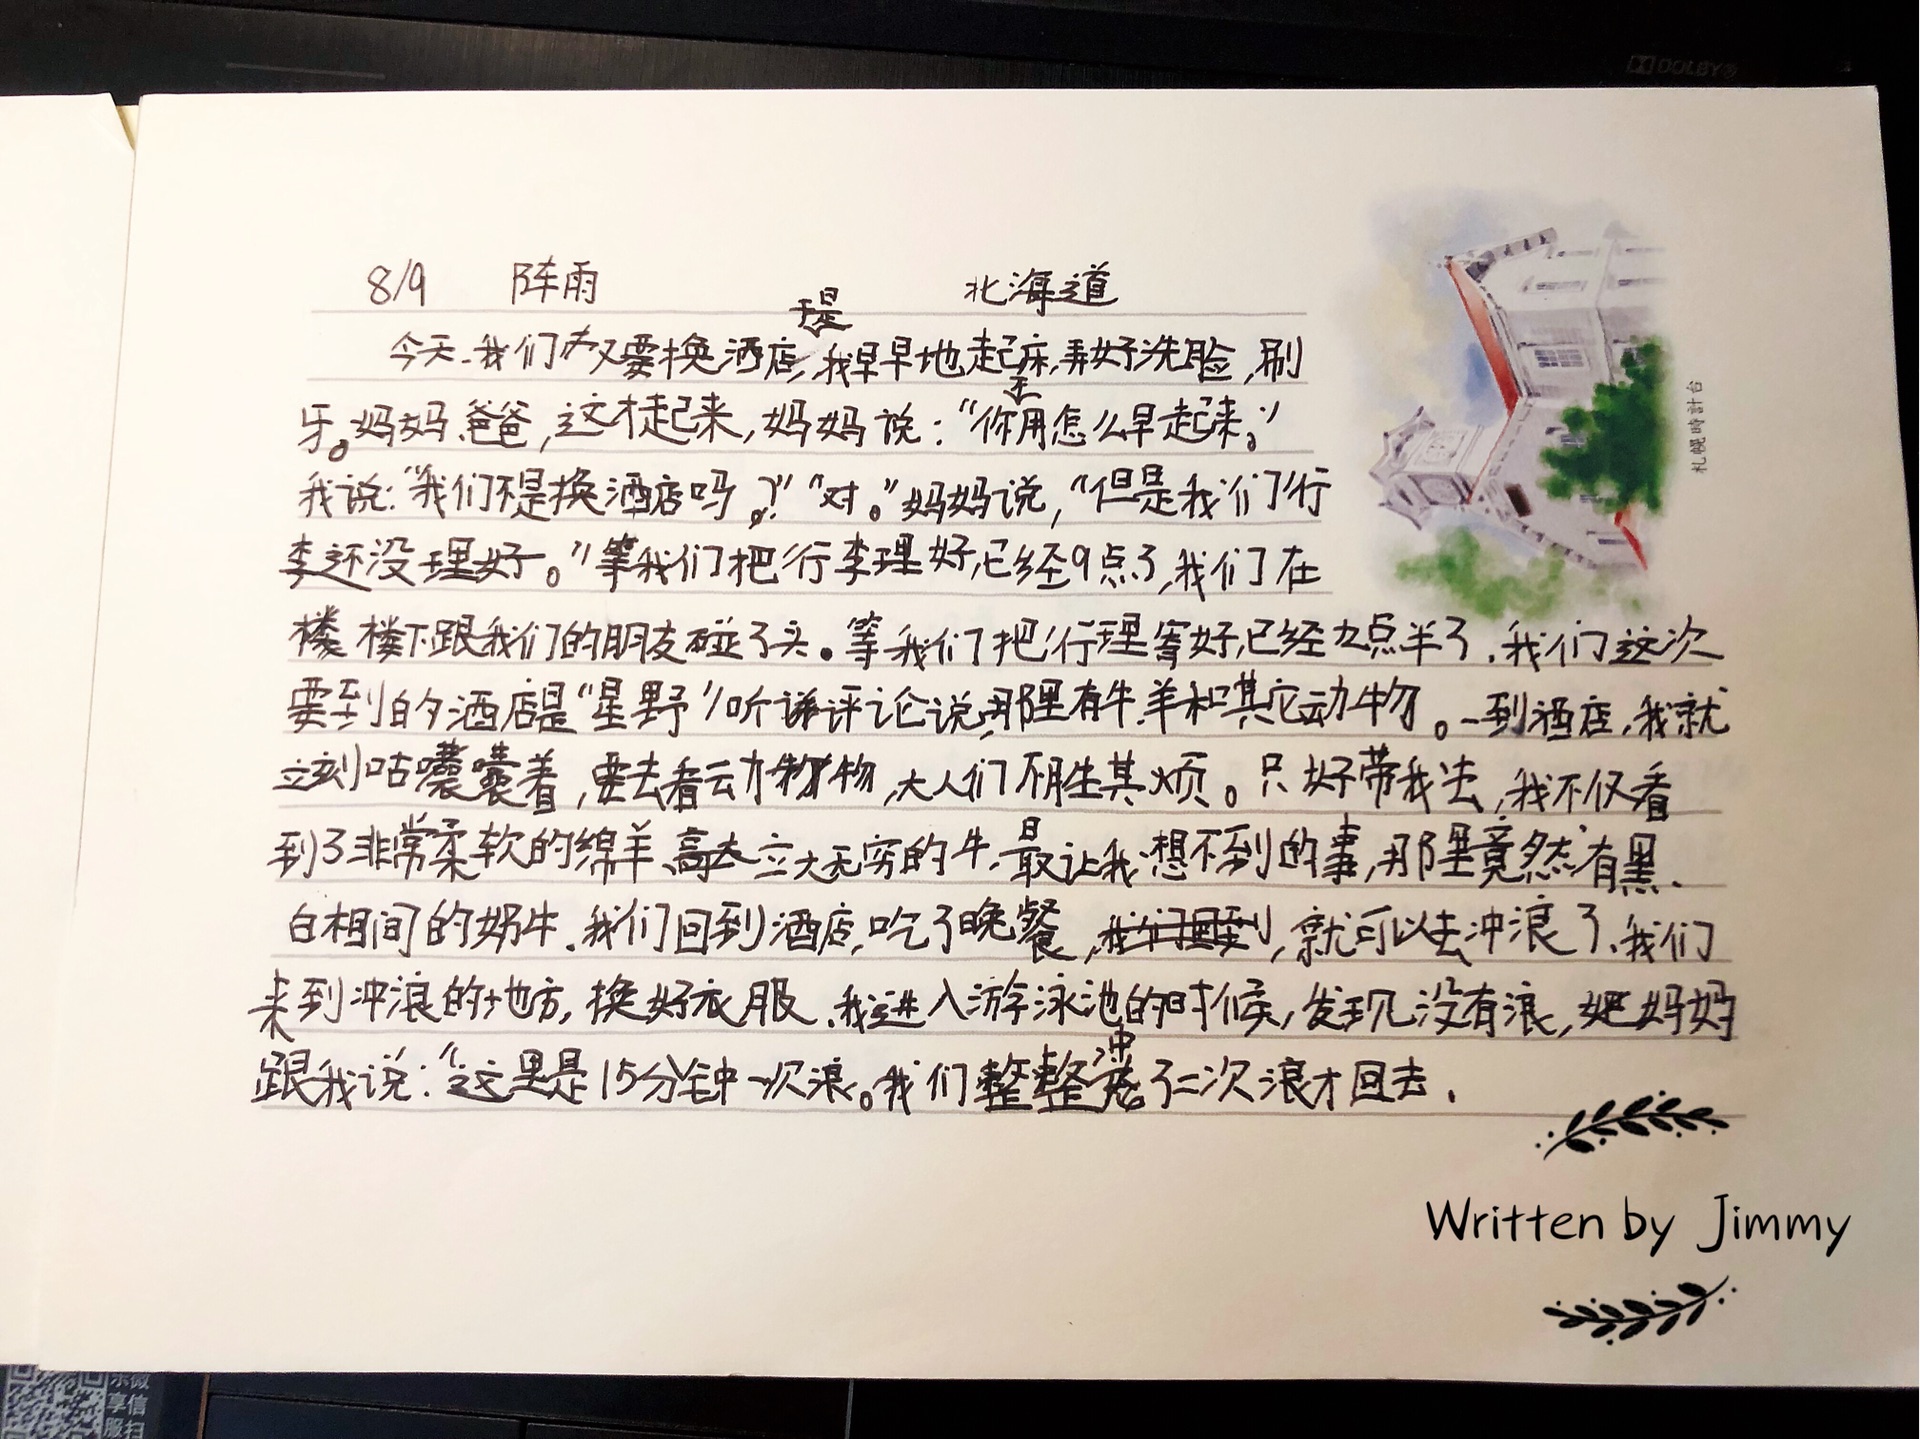 DOLBY
8/9 阵雨 北海道
今天、我们又要换酒店,于是我早早地起床,弄好洗脸,刷
牙。妈妈、爸爸,这才起来,妈妈说:“你不用怎么早起来。”
我说:“我们不是换酒店吗?”“对。”妈妈说,“但是我们行
李还没理好。”等我们把行李理好,已经9点了,我们在
楼下跟我们的朋友碰了头。等我们把行理等好,已经九点半了.我们这次
要到的酒店是“星野”听评论说,那里有牛、羊和其它动物。一到酒店,我就
立刻咕囔囔着,要去看动物,大人们不胜其烦。只好带我去,我不仅看
到了非常柔软的绵羊、高大立大无穷的牛.最让我想不到的事,那里竟然有黑、
白相间的奶牛.我们回到酒店,吃了晚餐,就可以去冲浪了.我们
来到冲浪的地方,换好衣服.我进入游泳池的时候,发现没有浪,妈妈
跟我说:“这里是15分钟一次浪。我们整整冲了二次浪才回去.
札幌時計台
Written by Jimmy